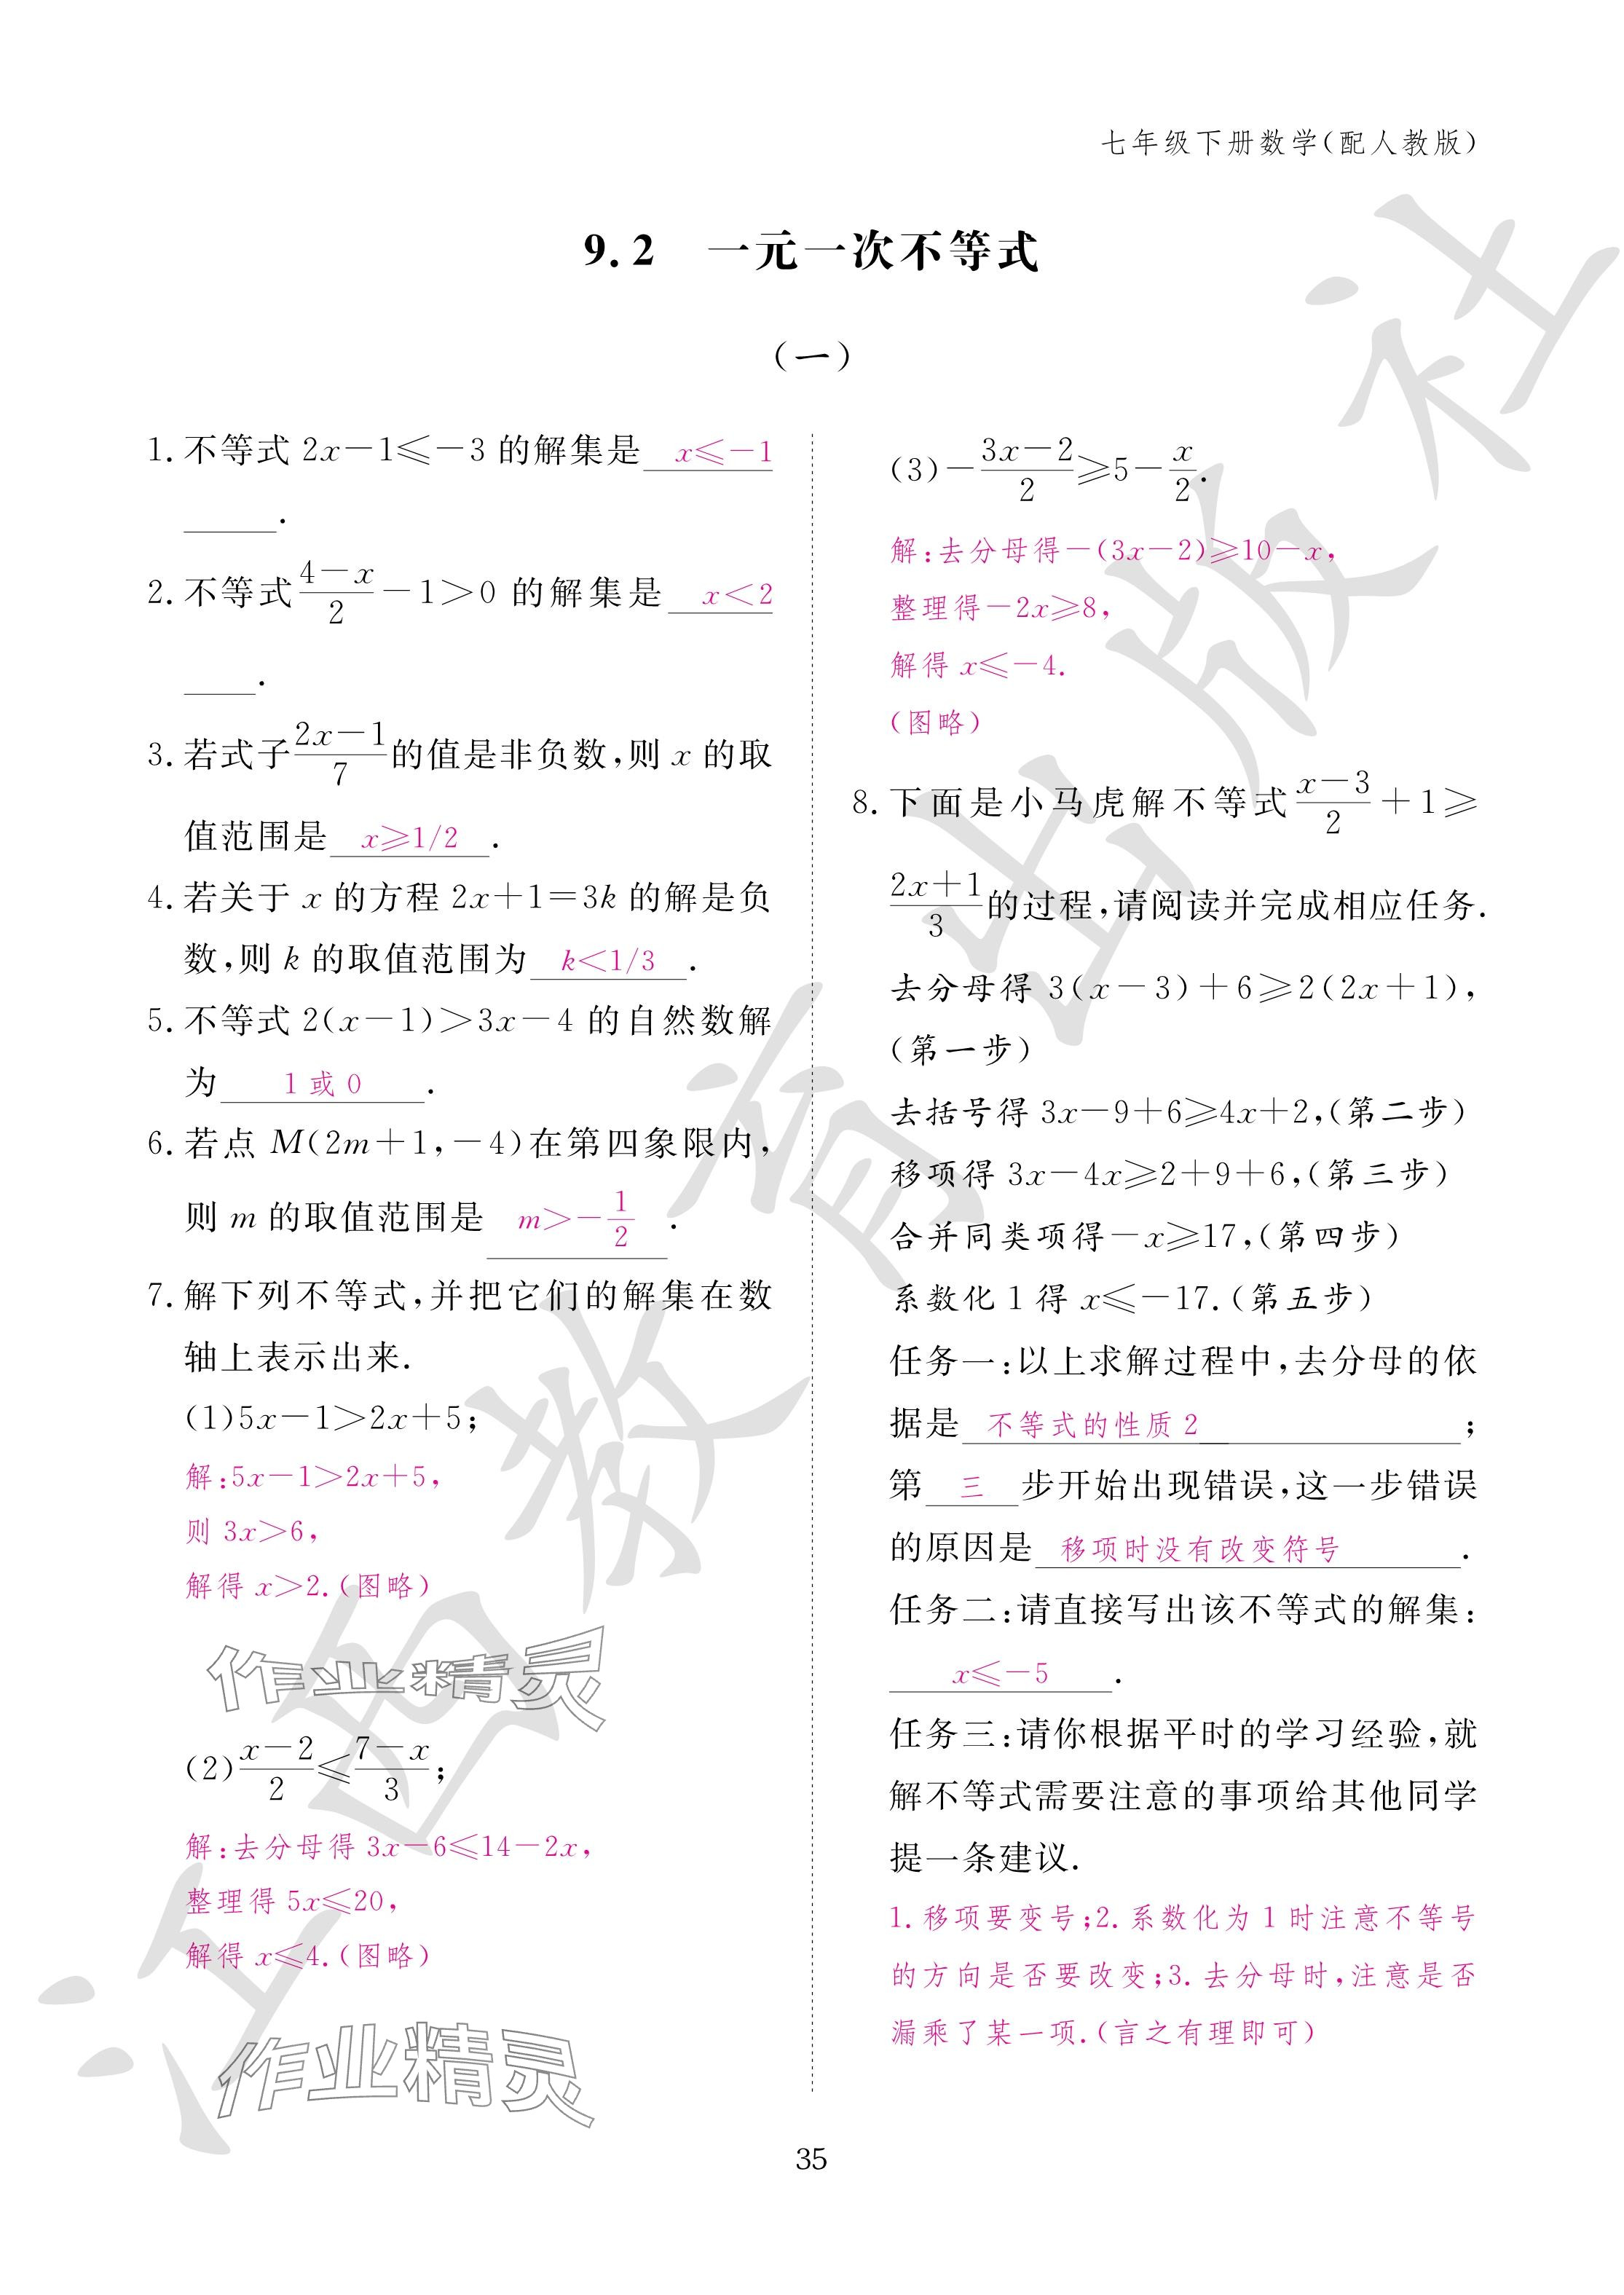 七年级下册数学(配人教版)
9.2 一元一次不等式
(一)
1. 不等式 2x－1≤－3 的解集是 x≤－1
.
2. 不等式 (4－x)/2 －1＞0 的解集是 x＜2
.
3. 若式子 (2x－1)/7 的值是非负数,则 x 的取
值范围是 x≥1/2 .
4. 若关于 x 的方程 2x＋1＝3k 的解是负
数,则 k 的取值范围为 k＜1/3 .
5. 不等式 2(x－1)＞3x－4 的自然数解
为 1 或 0 .
6. 若点 M(2m＋1,－4)在第四象限内,
则 m 的取值范围是 m＞－1/2 .
7. 解下列不等式,并把它们的解集在数
轴上表示出来.
(1)5x－1＞2x＋5;
解:5x－1＞2x＋5,
则 3x＞6,
解得 x＞2.(图略)
作业精灵
(2)(x－2)/2≤(7－x)/3;
解:去分母得 3x－6≤14－2x,
整理得 5x≤20,
解得 x≤4.(图略)
作业精灵
(3)－(3x－2)/2≥5－x/2.
解:去分母得－(3x－2)≥10－x,
整理得－2x≥8,
解得 x≤－4.
(图略)
8. 下面是小马虎解不等式 (x－3)/2 ＋1≥
(2x＋1)/3 的过程,请阅读并完成相应任务.
去分母得 3(x－3)＋6≥2(2x＋1),
(第一步)
去括号得 3x－9＋6≥4x＋2,(第二步)
移项得 3x－4x≥2＋9＋6,(第三步)
合并同类项得－x≥17,(第四步)
系数化 1 得 x≤－17.(第五步)
任务一:以上求解过程中,去分母的依
据是 不等式的性质 2 ;
第 三 步开始出现错误,这一步错误
的原因是 移项时没有改变符号 .
任务二:请直接写出该不等式的解集:
x≤－5 .
任务三:请你根据平时的学习经验,就
解不等式需要注意的事项给其他同学
提一条建议.
1. 移项要变号;2. 系数化为 1 时注意不等号
的方向是否要改变;3. 去分母时,注意是否
漏乘了某一项.(言之有理即可)
江西教育出版社
35